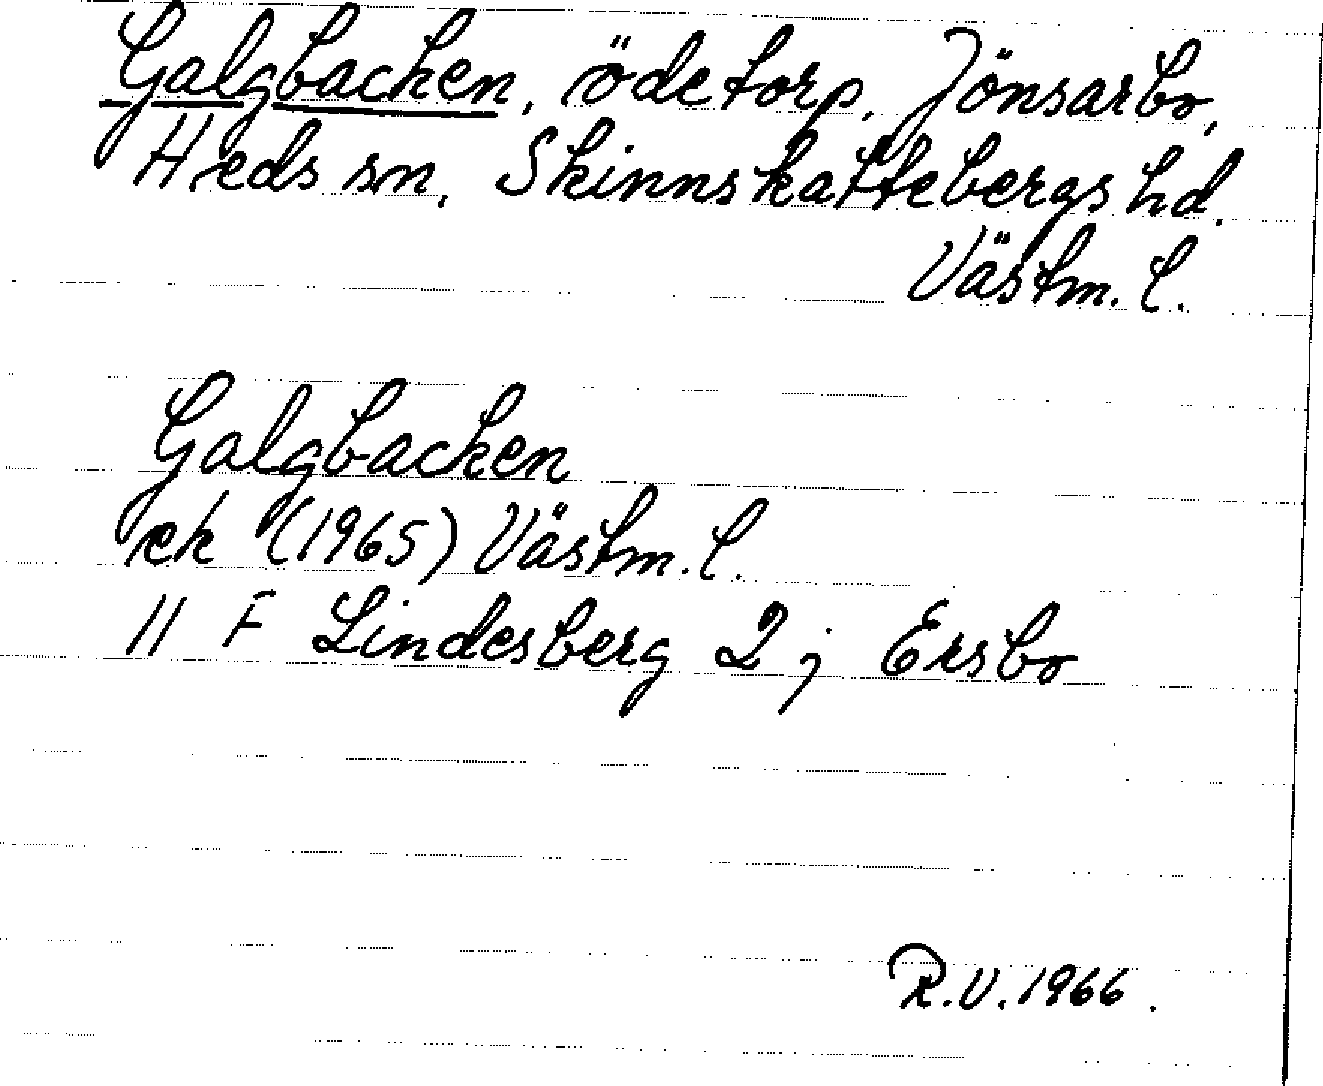 Galgbacken, ödetorp, Jönsarbo,
Heds sn, Skinnskattebergs hd.
Västm. l.
Galgbacken
ek (1965) Västm. l.
11 F Lindesberg 2 j Ersbo
R.V. 1966.